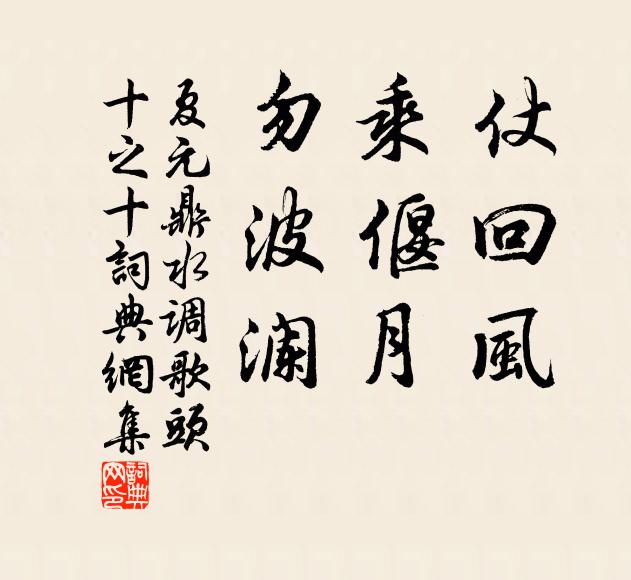 仗回風
乘偃月
勿波澜
夏元鼎水调歌頭
十之十詞典網集
詞典网印